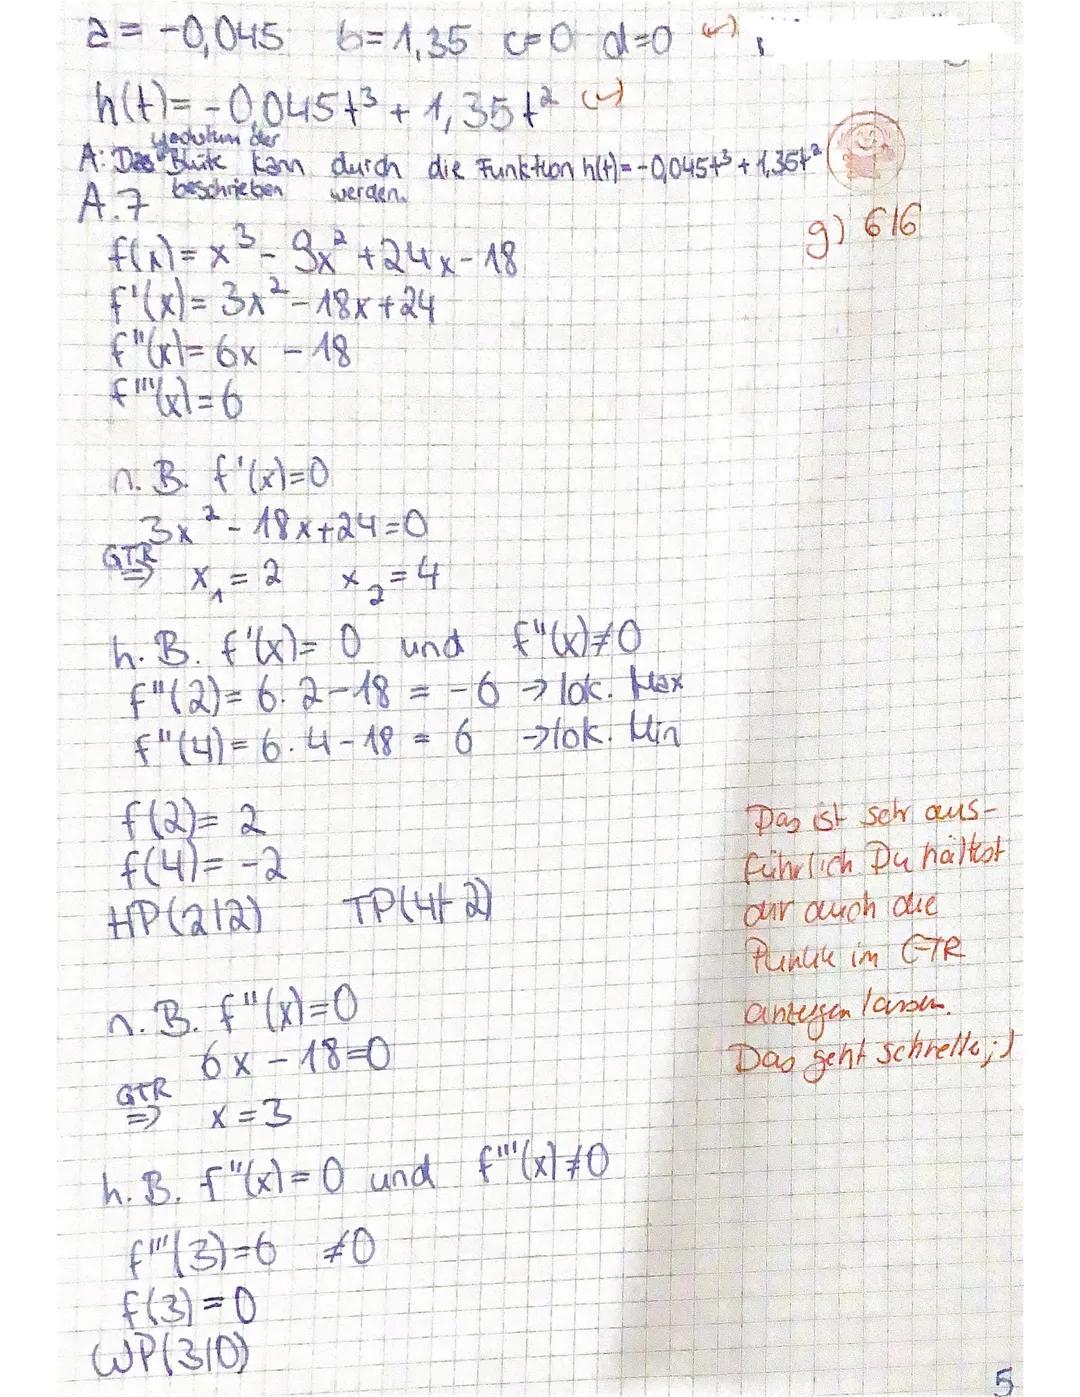 a = -0,045 b = 1,35 c=0 d=0 (✓)
h(t) = -0,045t³ + 1,35t² (✓)
Wachstum der
A: Das Blüte kann durch die Funktion h(t)=-0,045t³ + 1,35t²
beschrieben werden.
A.7
g) 6/6
f(x) = x³ - 9x² + 24x - 18
f'(x) = 3x² - 18x + 24
f"(x) = 6x - 18
f'''(x) = 6
n. B. f'(x)=0
3x² - 18x + 24 = 0
GTR
⇒ x₁ = 2 x₂ = 4
h. B. f'(x) = 0 und f"(x)≠0
f"(2) = 6 · 2 - 18 = -6 → lok. Max
f"(4) = 6 · 4 - 18 = 6 → lok. Min
f(2) = 2
f(4) = -2
HP(2|2) TP(4|-2)
Das ist sehr aus-
führlich Du hättest
dir auch die
Punkte im GTR
anzeigen lassen.
Das geht schneller ;)
n. B. f"(x)=0
6x - 18=0
GTR
⇒ x = 3
h. B. f"(x) = 0 und f'''(x) ≠ 0
f'''(3) = 6 ≠0
f(3) = 0
WP(3|0)
5